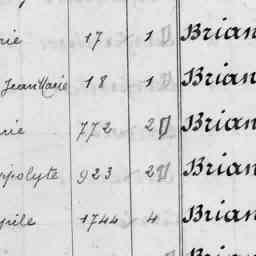 rie 17 1 Brian
Jean Marie 18 1 Brian
rie 772 2 Brian
ppolyte 923 2 Brian
pile 1744 4 Brian
Brian